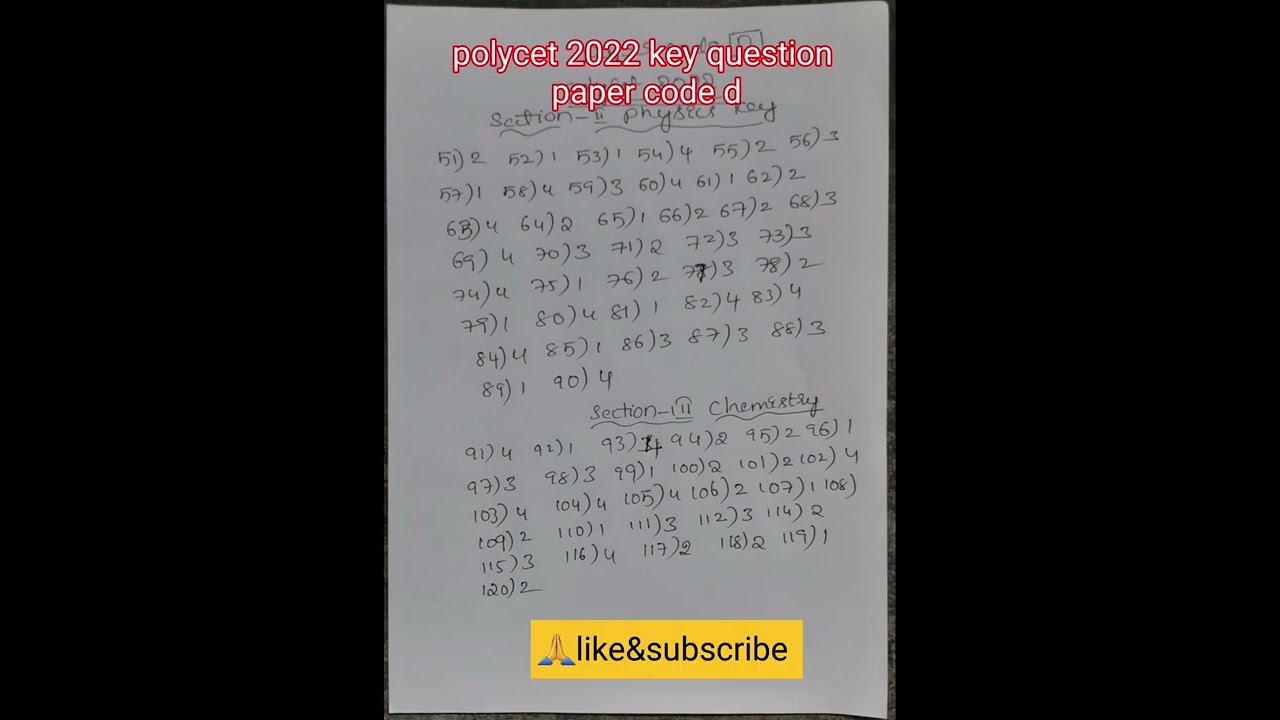 polycet 2022 key question
paper code d
2022
Section-II Physics Key
51) 2 52) 1 53) 1 54) 4 55) 2 56) 3
57) 1 58) 4 59) 3 60) 4 61) 1 62) 2
63) 4 64) 2 65) 1 66) 2 67) 2 68) 3
69) 4 70) 3 71) 2 72) 3 73) 3
74) 4 75) 1 76) 2 77) 3 78) 2
79) 1 80) 4 81) 1 82) 4 83) 4
84) 4 85) 1 86) 3 87) 3 88) 3
89) 1 90) 4
Section-III Chemistry
91) 4 92) 1 93) 4 94) 2 95) 2 96) 1
97) 3 98) 3 99) 1 100) 2 101) 2 102) 4
103) 4 104) 4 105) 4 106) 2 107) 1 108)
109) 2 110) 1 111) 3 112) 3 114) 2
115) 3 116) 4 117) 2 118) 2 119) 1
120) 2
🙏like&subscribe